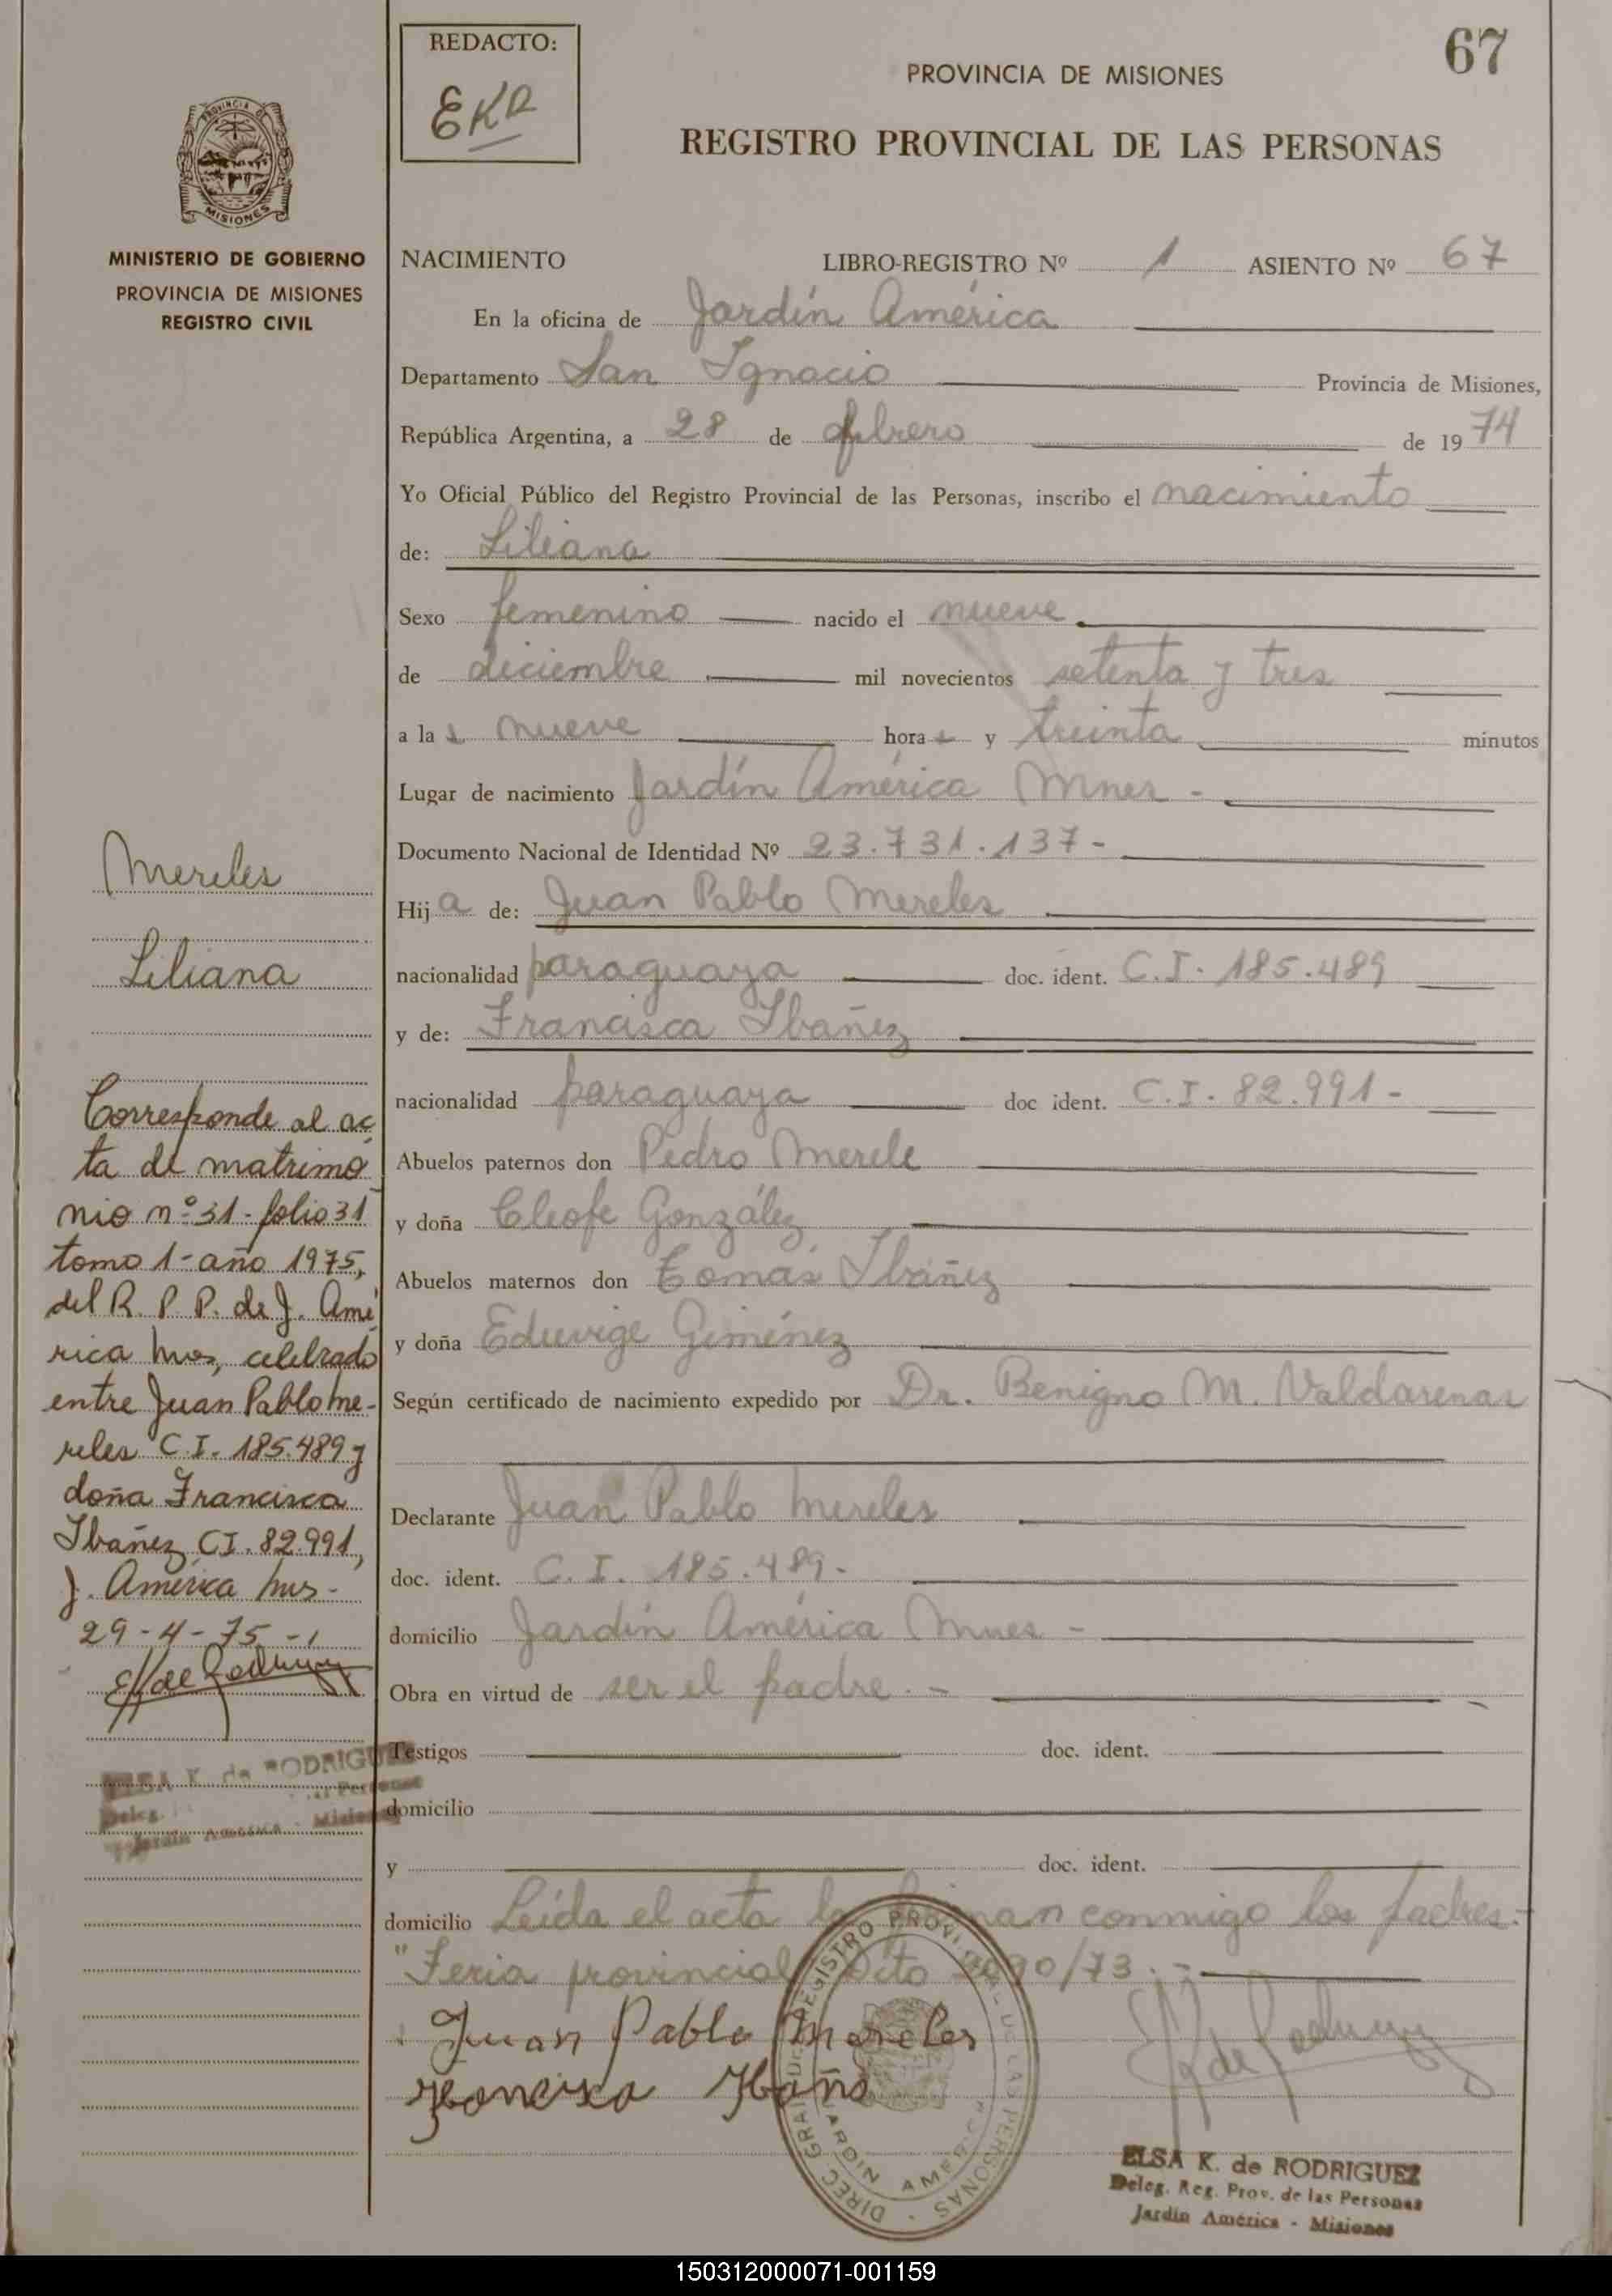 REDACTO:
EKR
67
PROVINCIA DE MISIONES
REGISTRO PROVINCIAL DE LAS PERSONAS
PROVINCIA
MISIONES
MINISTERIO DE GOBIERNO
PROVINCIA DE MISIONES
REGISTRO CIVIL
NACIMIENTO LIBRO-REGISTRO Nº 1 ASIENTO Nº 67
En la oficina de Jardín América
Departamento San Ignacio Provincia de Misiones,
República Argentina, a 28 de febrero de 1974
Yo Oficial Público del Registro Provincial de las Personas, inscribo el nacimiento
de: Liliana
Sexo femenino nacido el nueve
de diciembre mil novecientos setenta y tres
a las nueve horas y treinta minutos
Lugar de nacimiento Jardín América Mnes -
Documento Nacional de Identidad Nº 23.731.137-
Hija de: Juan Pablo Mereles
nacionalidad paraguaya doc. ident. C.I. 185.489
y de: Francisca Ibañez
nacionalidad paraguaya doc ident. C.I. 82.991-
Abuelos paternos don Pedro Merele
y doña Cleofe González
Abuelos maternos don Tomás Ibáñez
y doña Eduvige Giménez
Según certificado de nacimiento expedido por Dr. Benigno M. Valdarenas
Declarante Juan Pablo Mereles
doc. ident. C.I. 185.489-
domicilio Jardín América Mnes -
Obra en virtud de ser el padre. -
Testigos doc. ident.
domicilio
y doc. ident.
domicilio Leída el acta la firman conmigo los padres.-
"Feria provincial Dto 90/73.-
Juan Pablo Mereles
Ibañe
Mereles
Liliana
Corresponde al ac
ta de matrimo
nio nº 31- folio 31
tomo 1- año 1975,
del R. P. P. de J. Amé
rica Mnes, celebrado
entre Juan Pablo Me-
reles C.I. 185.489 y
doña Francisca
Ibañez CI. 82.991,
J. América Mns-
29-4-75-
ELSA K. de RODRIGUEZ
Deleg.
Jardín América - Misiones
DIREC. GRAL. DEL REGISTRO PROVINCIAL DE LAS PERSONAS
JARDIN AMERICA
ELSA K. de RODRIGUEZ
Deleg. Reg. Prov. de las Personas
Jardín América - Misiones
150312000071-001159